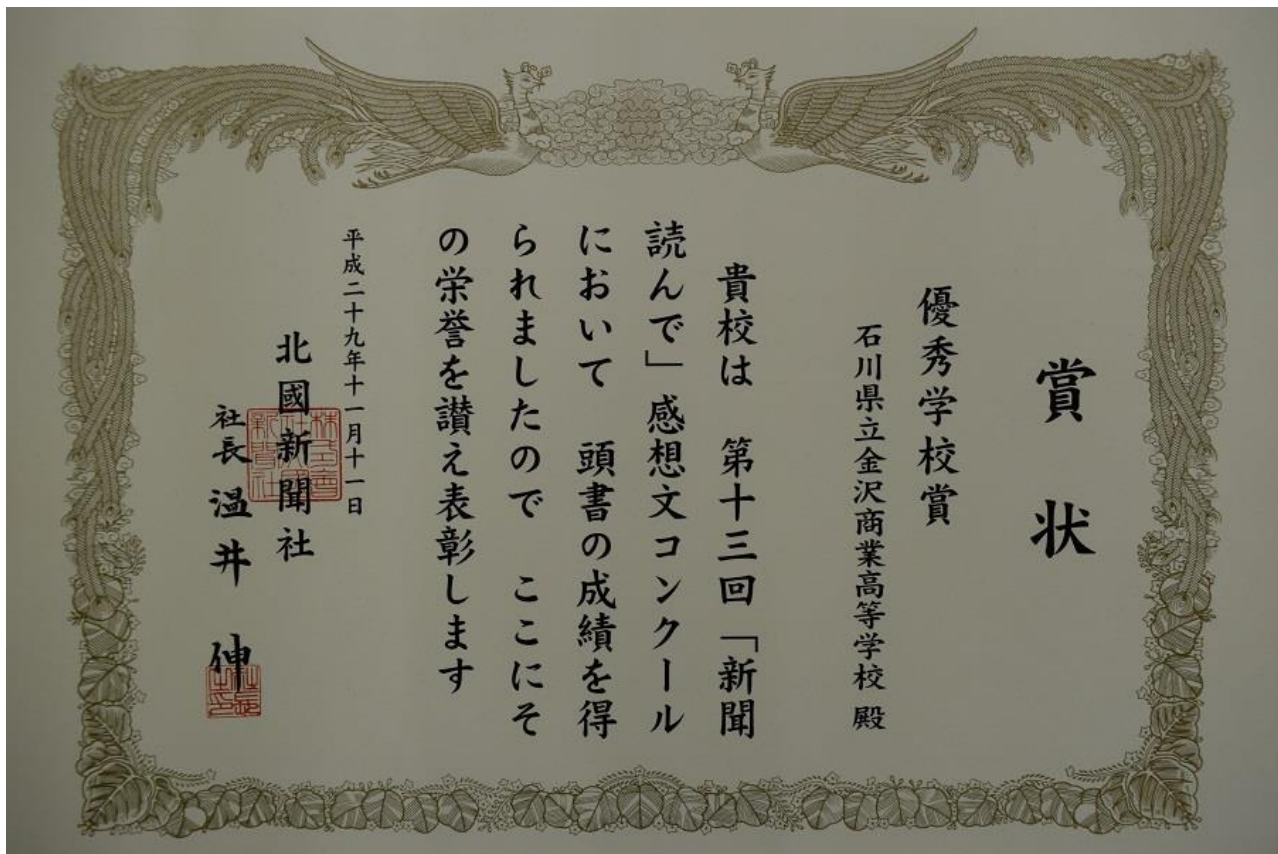 賞状
優秀学校賞
石川県立金沢商業高等学校 殿
貴校は 第十三回「新聞
読んで」感想文コンクール
において 頭書の成績を得
られましたので ここにそ
の栄誉を讃え表彰します
平成二十九年十一月十一日
北國新聞社
社長 温井 伸